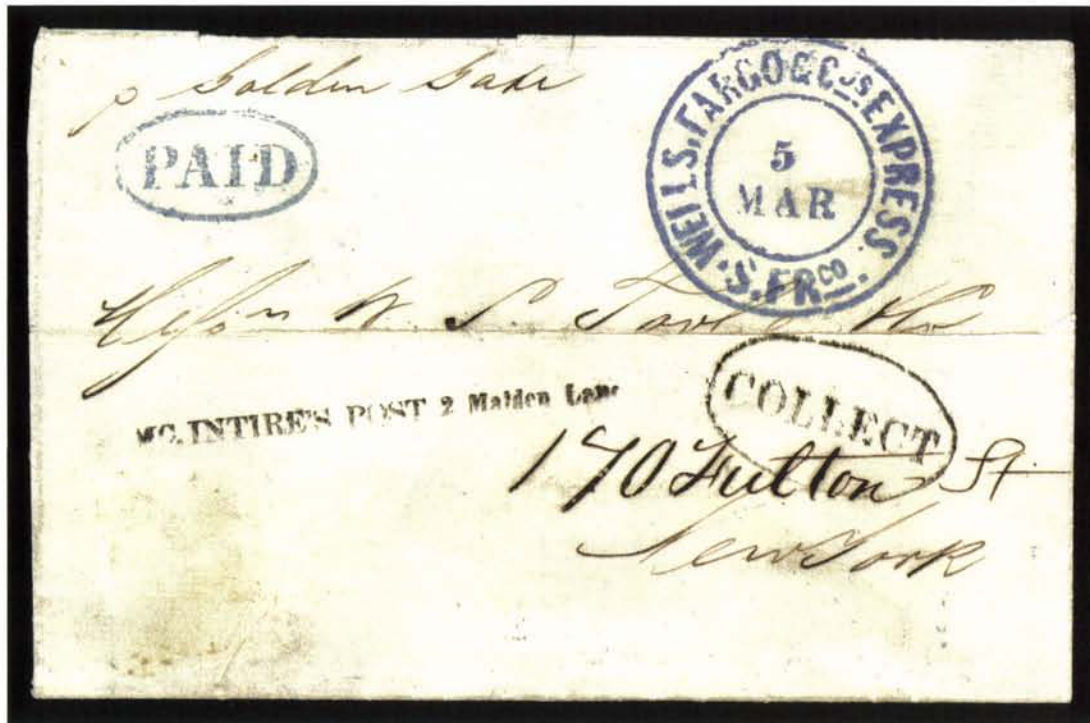 p Golden Gate
PAID
WELLS, FARGO & Cos EXPRESS
5
MAR
S. FRco.
W. S.
MC. INTIRE'S POST 2 Maiden Lane
COLLECT
170 Fulton St.
New York